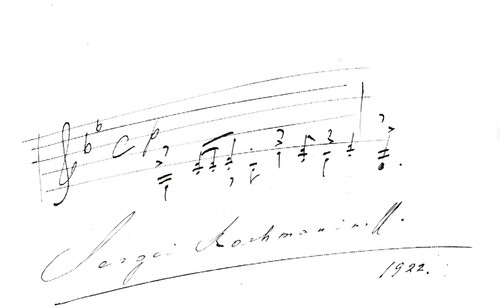 Sergei Rachmaninoff.
1922.